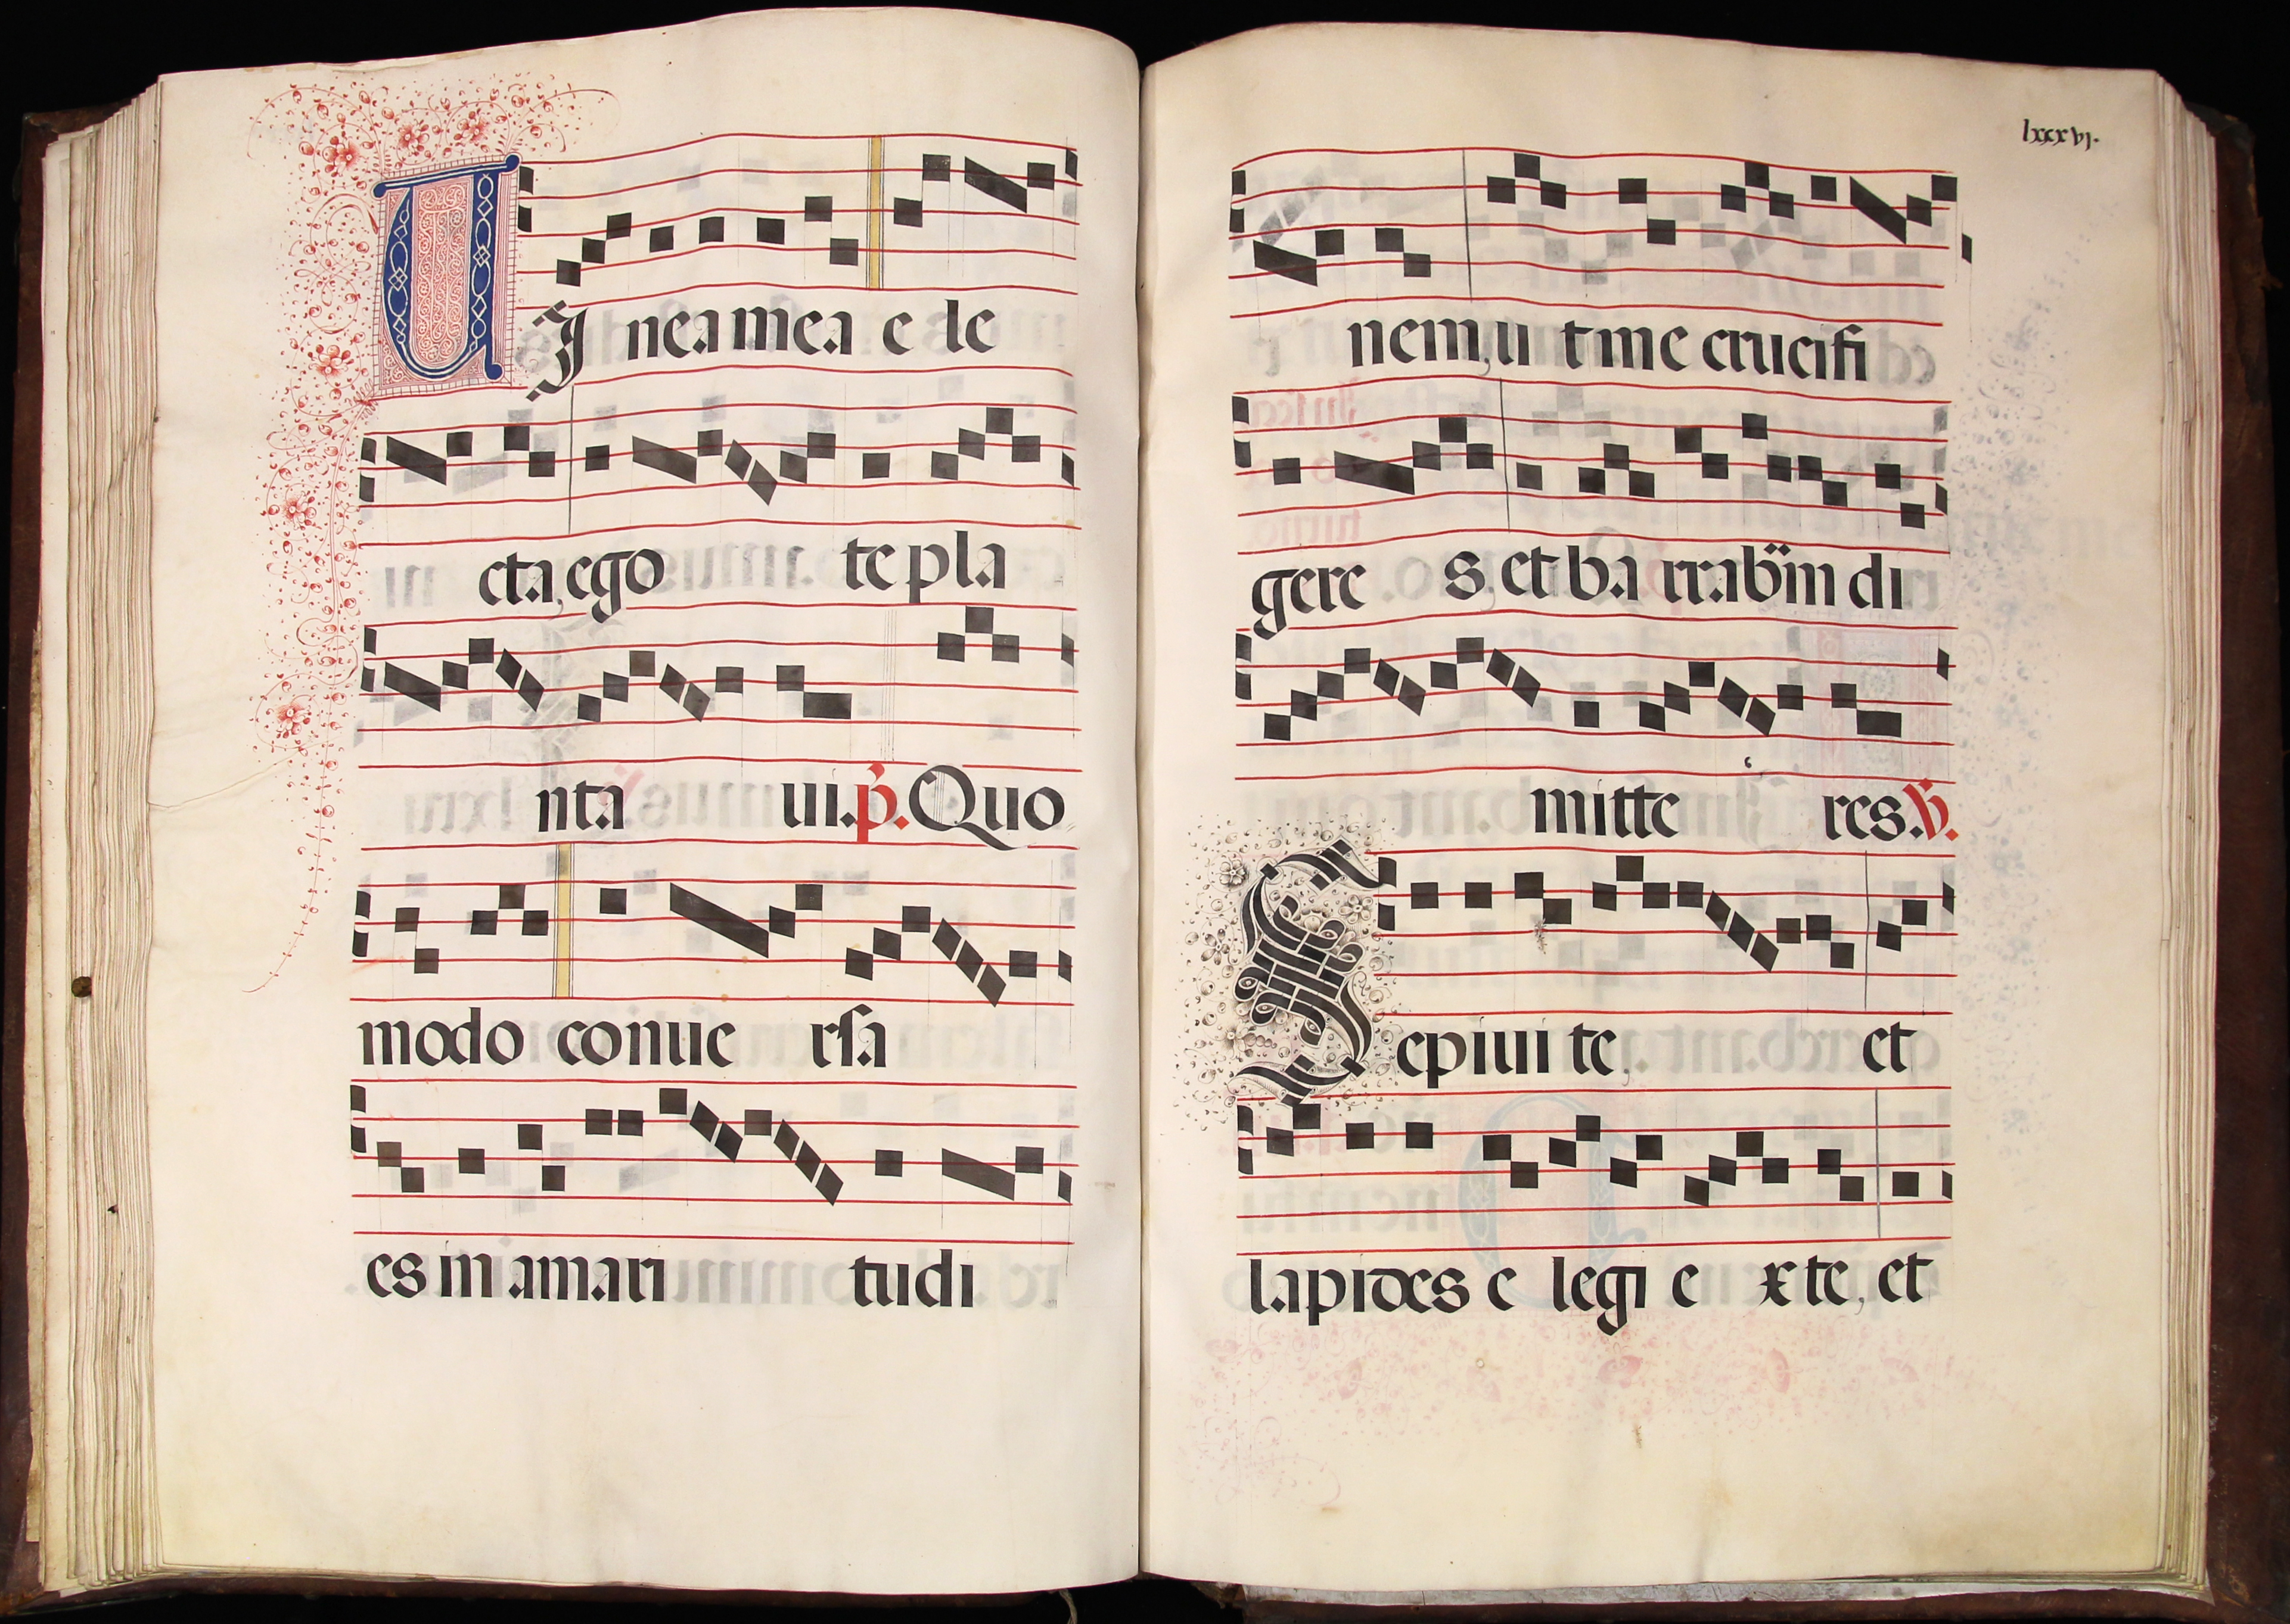 UJ nea mea e le
cta, ego te pla
nta ui. p̃. Quo
modo conue rsa
es in amari tudi
lxxxvj.
nem, u t me crucifi
gere s, et ba rrabäm di
mitte res. V.
Sepiui te, et
lapides e legi e x te, et